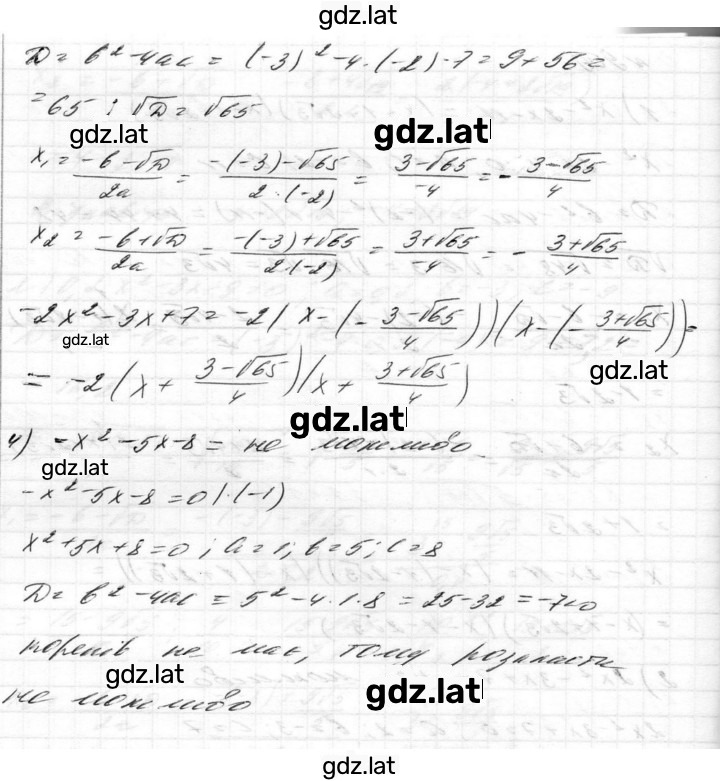 gdz.lat
D = b² - 4ac = (-3)² - 4·(-2)·7 = 9 + 56 =
= 65 ; √D = √65
gdz.lat gdz.lat
x₁ = (-b - √D)/(2a) = (-(-3) - √65)/(2·(-2)) = (3 - √65)/(-4) = - (3 - √65)/4
x₂ = (-b + √D)/(2a) = (-(-3) + √65)/(2·(-2)) = (3 + √65)/(-4) = - (3 + √65)/4
-2x² - 3x + 7 = -2(x - (- (3 - √65)/4))(x - (- (3 + √65)/4)) =
gdz.lat gdz.lat
= -2(x + (3 - √65)/4)(x + (3 + √65)/4)
gdz.lat
4) -x² - 5x - 8 = не можливо
gdz.lat
-x² - 5x - 8 = 0 |·(-1)
x² + 5x + 8 = 0 ; a = 1 ; b = 5 ; c = 8
D = b² - 4ac = 5² - 4·1·8 = 25 - 32 = -7 < 0
коренів не має, тому розкласти
gdz.lat gdz.lat
не можливо
gdz.lat